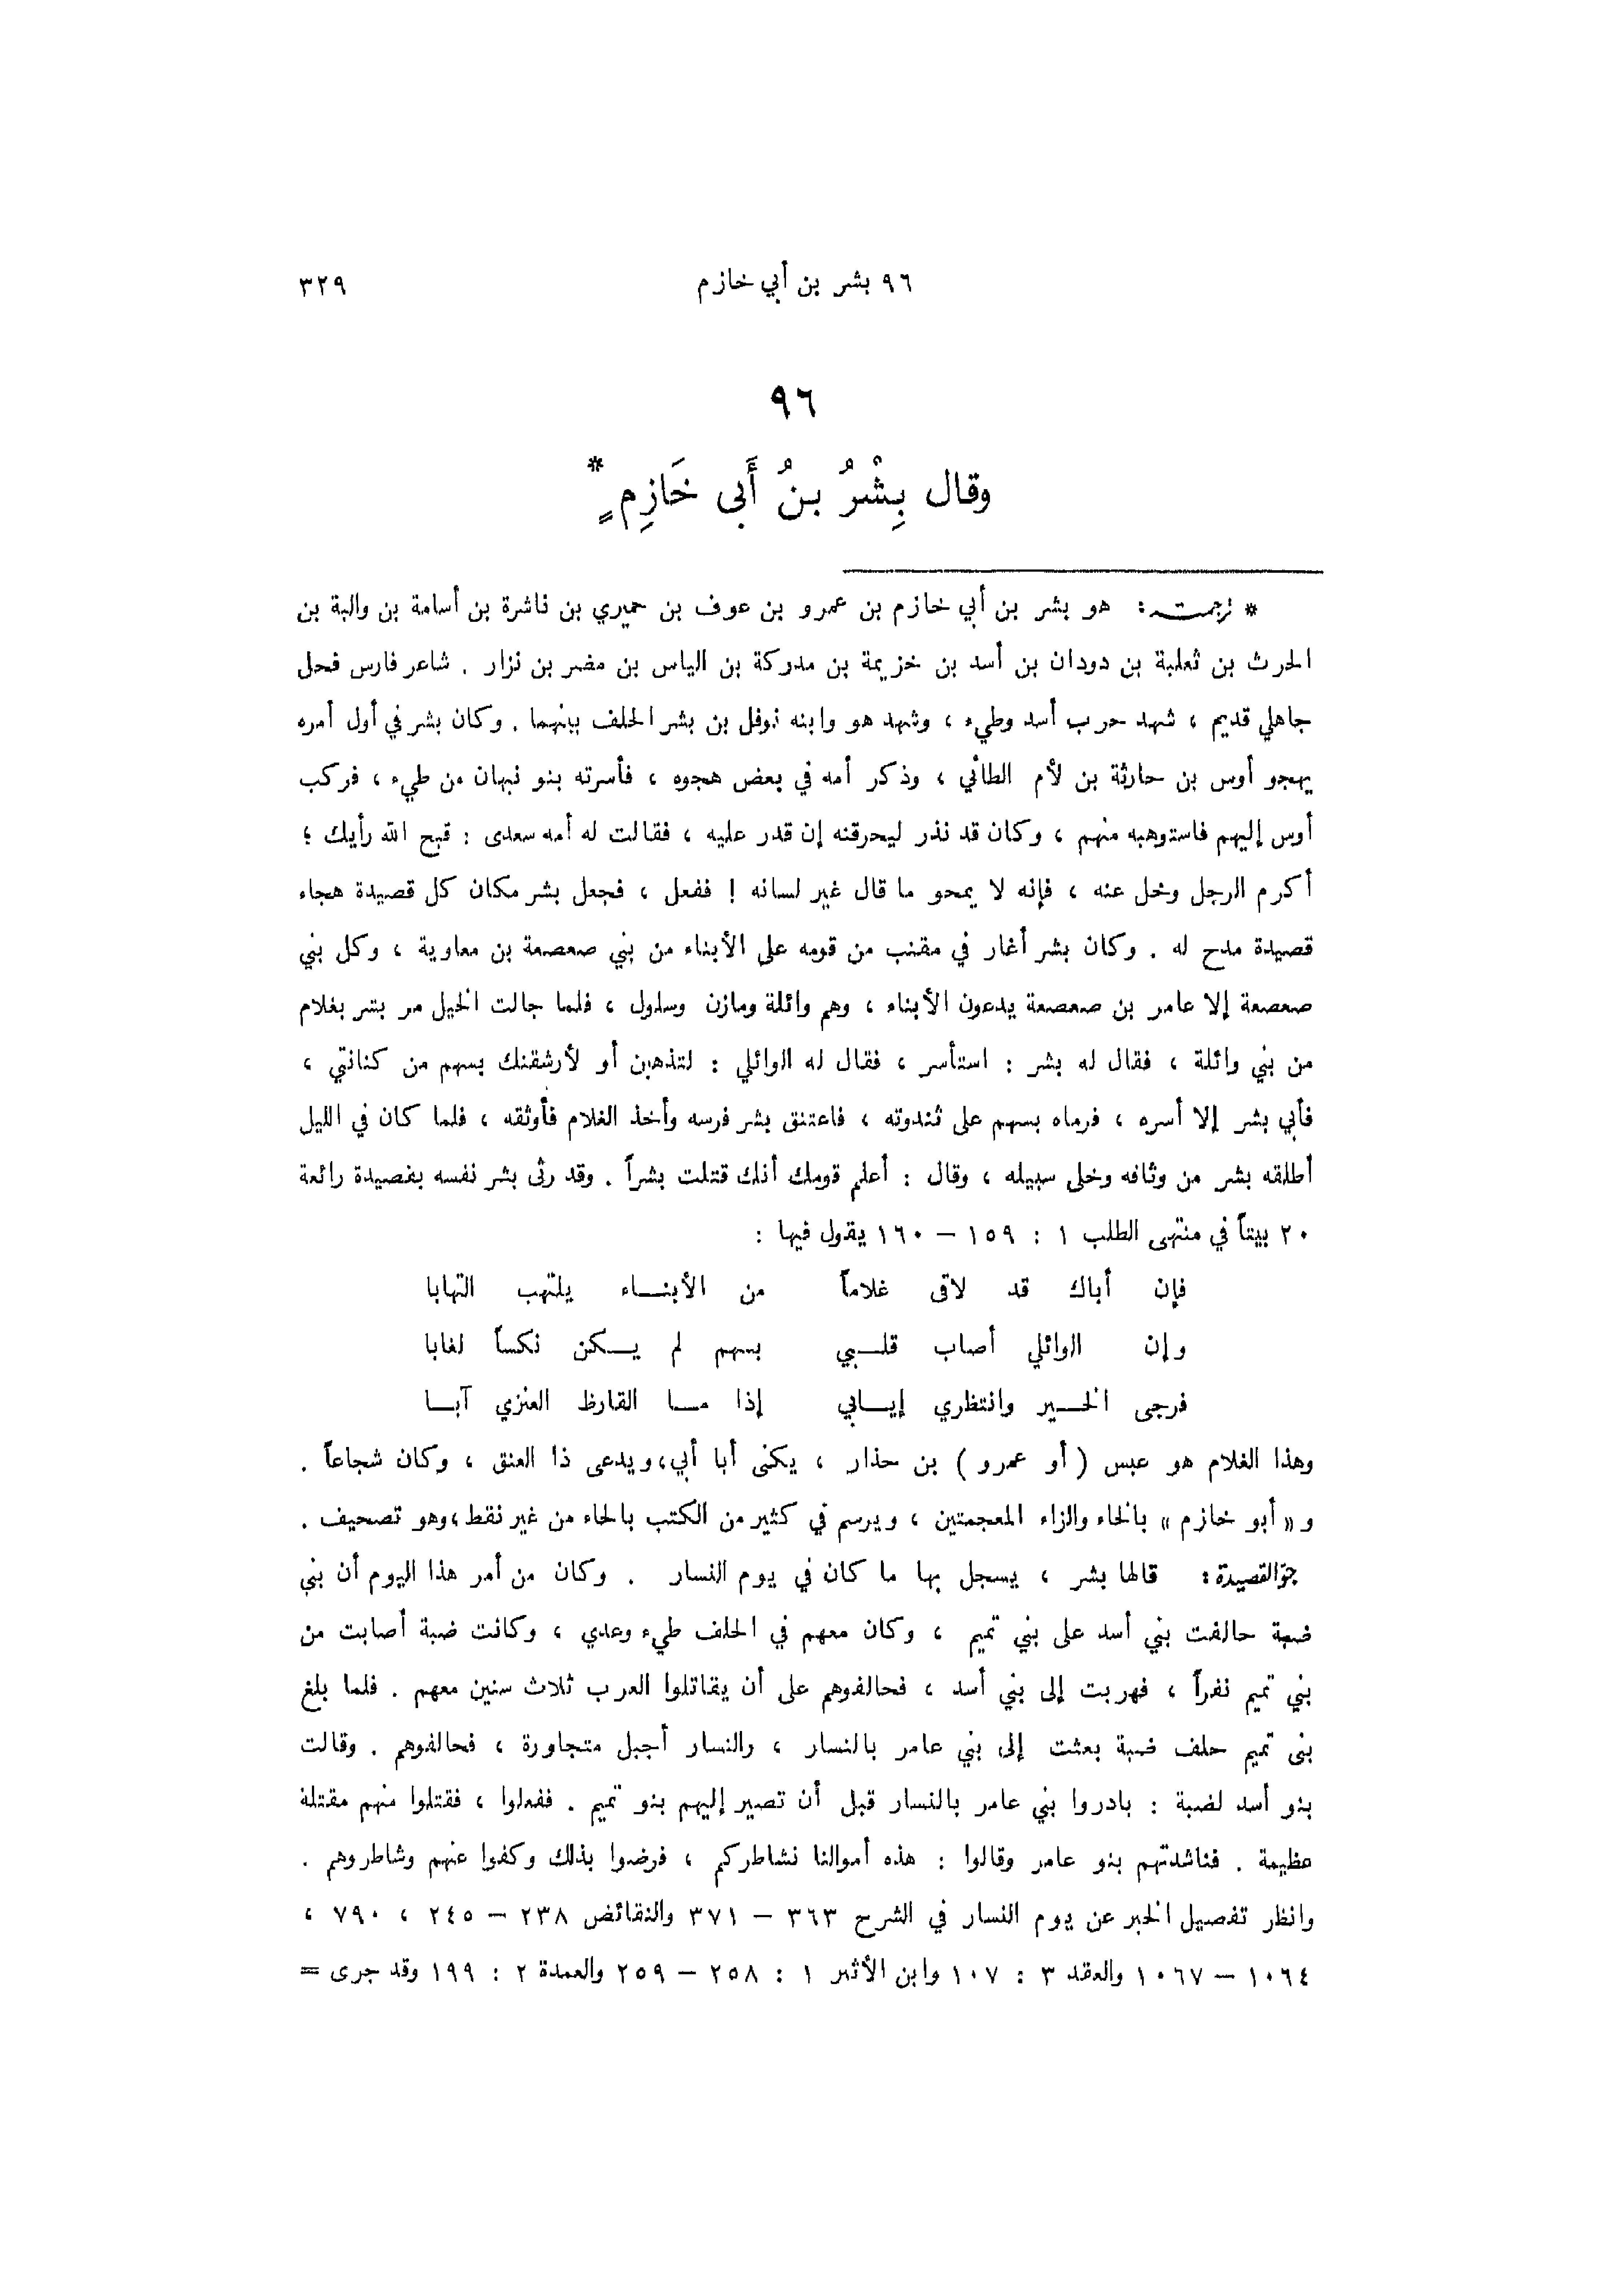 ٩٦ بشر بن أبي خازم
٣٢٩
٩٦
وقال بِشْرُ بنُ أَبى خَازِمٍ *
* ترجمته: هو بشر بن أبي خازم بن عمرو بن عوف بن حميري بن ناشرة بن أسامة بن والبة بن
الحرث بن ثعلبة بن دودان بن أسد بن خزيمة بن مدركة بن الياس بن مضر بن نزار . شاعر فارس فحل
جاهلي قديم ، شهد حرب أسد وطيء ، وشهد هو وابنه نوفل بن بشر الحلف بينهما . وكان بشر في أول أمره
يهجو أوس بن حارثة بن لأم الطائي ، وذكر أمه في بعض هجوه ، فأسرته بنو نبهان من طيء ، فركب
أوس إليهم فاستوهبه منهم ، وكان قد نذر ليحرقنه إن قدر عليه ، فقالت له أمه سعدى : قبح الله رأيك ؛
أكرم الرجل وخل عنه ، فإنه لا يمحو ما قال غير لسانه ! ففعل ، فجعل بشر مكان كل قصيدة هجاء
قصيدة مدح له . وكان بشر أغار في مقنب من قومه على الأبناء من بني صعصعة بن معاوية ، وكل بني
صعصعة إلا عامر بن صعصعة يدعون الأبناء ، وهم وائلة ومازن وسلول ، فلما جالت الخيل مر بشر بغلام
من بني وائلة ، فقال له بشر : استأسر ، فقال له الوائلي : لتذهبن أو لأرشقنك بسهم من كنانتي ،
فأبي بشر إلا أسره ، فرماه بسهم على ثندوته ، فاعتنق بشر فرسه وأخذ الغلام فأوثقه ، فلما كان في الليل
أطلقه بشر من وثاقه وخلى سبيله ، وقال : أعلم قومك أنك قتلت بشراً . وقد رثى بشر نفسه بقصيدة رائعة
٢٠ بيتاً في منتهى الطلب ١ : ١٥٩ – ١٦٠ يقول فيها :
فإن أباك قد لاقى غلاماً من الأبنـــاء يلتهب التهابا
وإن الوائلي أصاب قلـــبي بسهم لم يـــكن نكساً لغابا
فرجى الخـــير وانتظري إيـــابي إذا مـــا القارظ العنزي آبـــا
وهذا الغلام هو عبس ( أو عمرو ) بن حذار ، يكنى أبا أبي، ويدعى ذا العنق ، وكان شجاعاً .
و « أبو خازم » بالخاء والزاء المعجمتين ، ويرسم في كثير من الكتب بالحاء من غير نقط، وهو تصحيف .
جوّ القصيدة: قالها بشر ، يسجل بها ما كان في يوم النسار . وكان من أمر هذا اليوم أن بني
ضبة حالفت بني أسد على بني تميم ، وكان معهم في الحلف طيء وعدي ، وكانت ضبة أصابت من
بني تميم نفراً ، فهربت إلى بني أسد ، فحالفوهم على أن يقاتلوا العرب ثلاث سنين معهم . فلما بلغ
بنى تميم حلف ضبة بعثت إلى بني عامر بالنسار ، والنسار أجبل متجاورة ، فحالفوهم . وقالت
بنو أسد لضبة : بادروا بني عامر بالنسار قبل أن تصير إليهم بنو تميم . ففعلوا ، فقتلوا منهم مقتلة
عظيمة . فناشدتهم بنو عامر وقالوا : هذه أموالنا نشاطركم ، فرضوا بذلك وكفوا عنهم وشاطروهم .
وانظر تفصيل الخبر عن يوم النسار في الشرح ٣٦٣ – ٣٧١ والنقائض ٢٣٨ – ٢٤٥ ، ٧٩٠ ،
١٠٦٤ – ١٠٦٧ والعقد ٣ : ١٠٧ وابن الأثير ١ : ٢٥٨ – ٢٥٩ والعمدة ٢ : ١٩٩ وقد جرى =